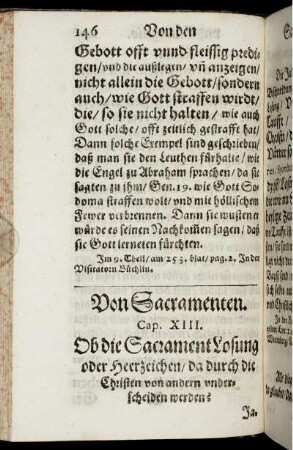 146 Von den
Gebott offt vnnd fleissig predi-
gen/vnd die außlegen/ vñ anzeigen/
nicht allein die Gebott/sondern
auch/wie Gott straffen wirdt/
die/so sie nicht halten/ wie auch
Gott solche/ offt zeitlich gestrafft hat/
Dann solche Exempel sind geschriben/
daß man sie den Leuthen fürhalte/wie
die Engel zu Abraham sprachen/da sie
sagten zu jhm/Gen. 19. wie Gott So-
doma straffen wolt/ vnd mit höllischem
Fewer verbrennen. Dann sie wusten er
würde es seinen Nachkom̃en sagen/ daß
sie Gott lerneten fürchten.
Im 9. Theil/ am 255. blat/pag. 2. In der
Visitatorn Büchlin.
Von Sacramenten.
Cap. XIII.
Ob die Sacrament Losung
oder Heerzeichen/da durch die
Christen von andern vnder-
scheiden werden?
Ja.